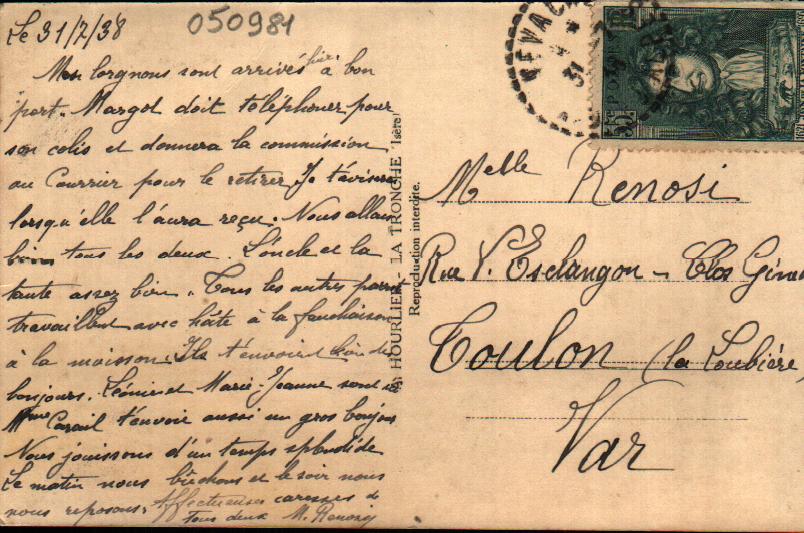 Le 31/7/38
050981
Mes lorgnons sont arrivés hier à bon
port. Margot doit téléphoner pour
son colis et donnera la commission
au Courrier pour le retirer. Je t'aviserai
lorsqu'elle l'aura reçu. Nous allons
bien tous les deux. L'oncle et la
tante assez bien. Tous les autres
travaillent avec hâte à la fauchaison
à la moisson. Ils t'envoient bien des
bonjours. et Marie-Jeanne sont
Mme t'envoie aussi un gros bonjour
Nous jouissons d'un temps splendide
Le matin nous bûchons et le soir nous
nous reposons. Affectueuses caresses de
tous deux M. Renosi
HOURLIER - LA TRONCHE (Isère)
Reproduction interdite.
NEVAC
31
Melle Renosi
Rue V. Esclangon - Clos
Toulon (la Loubière
Var